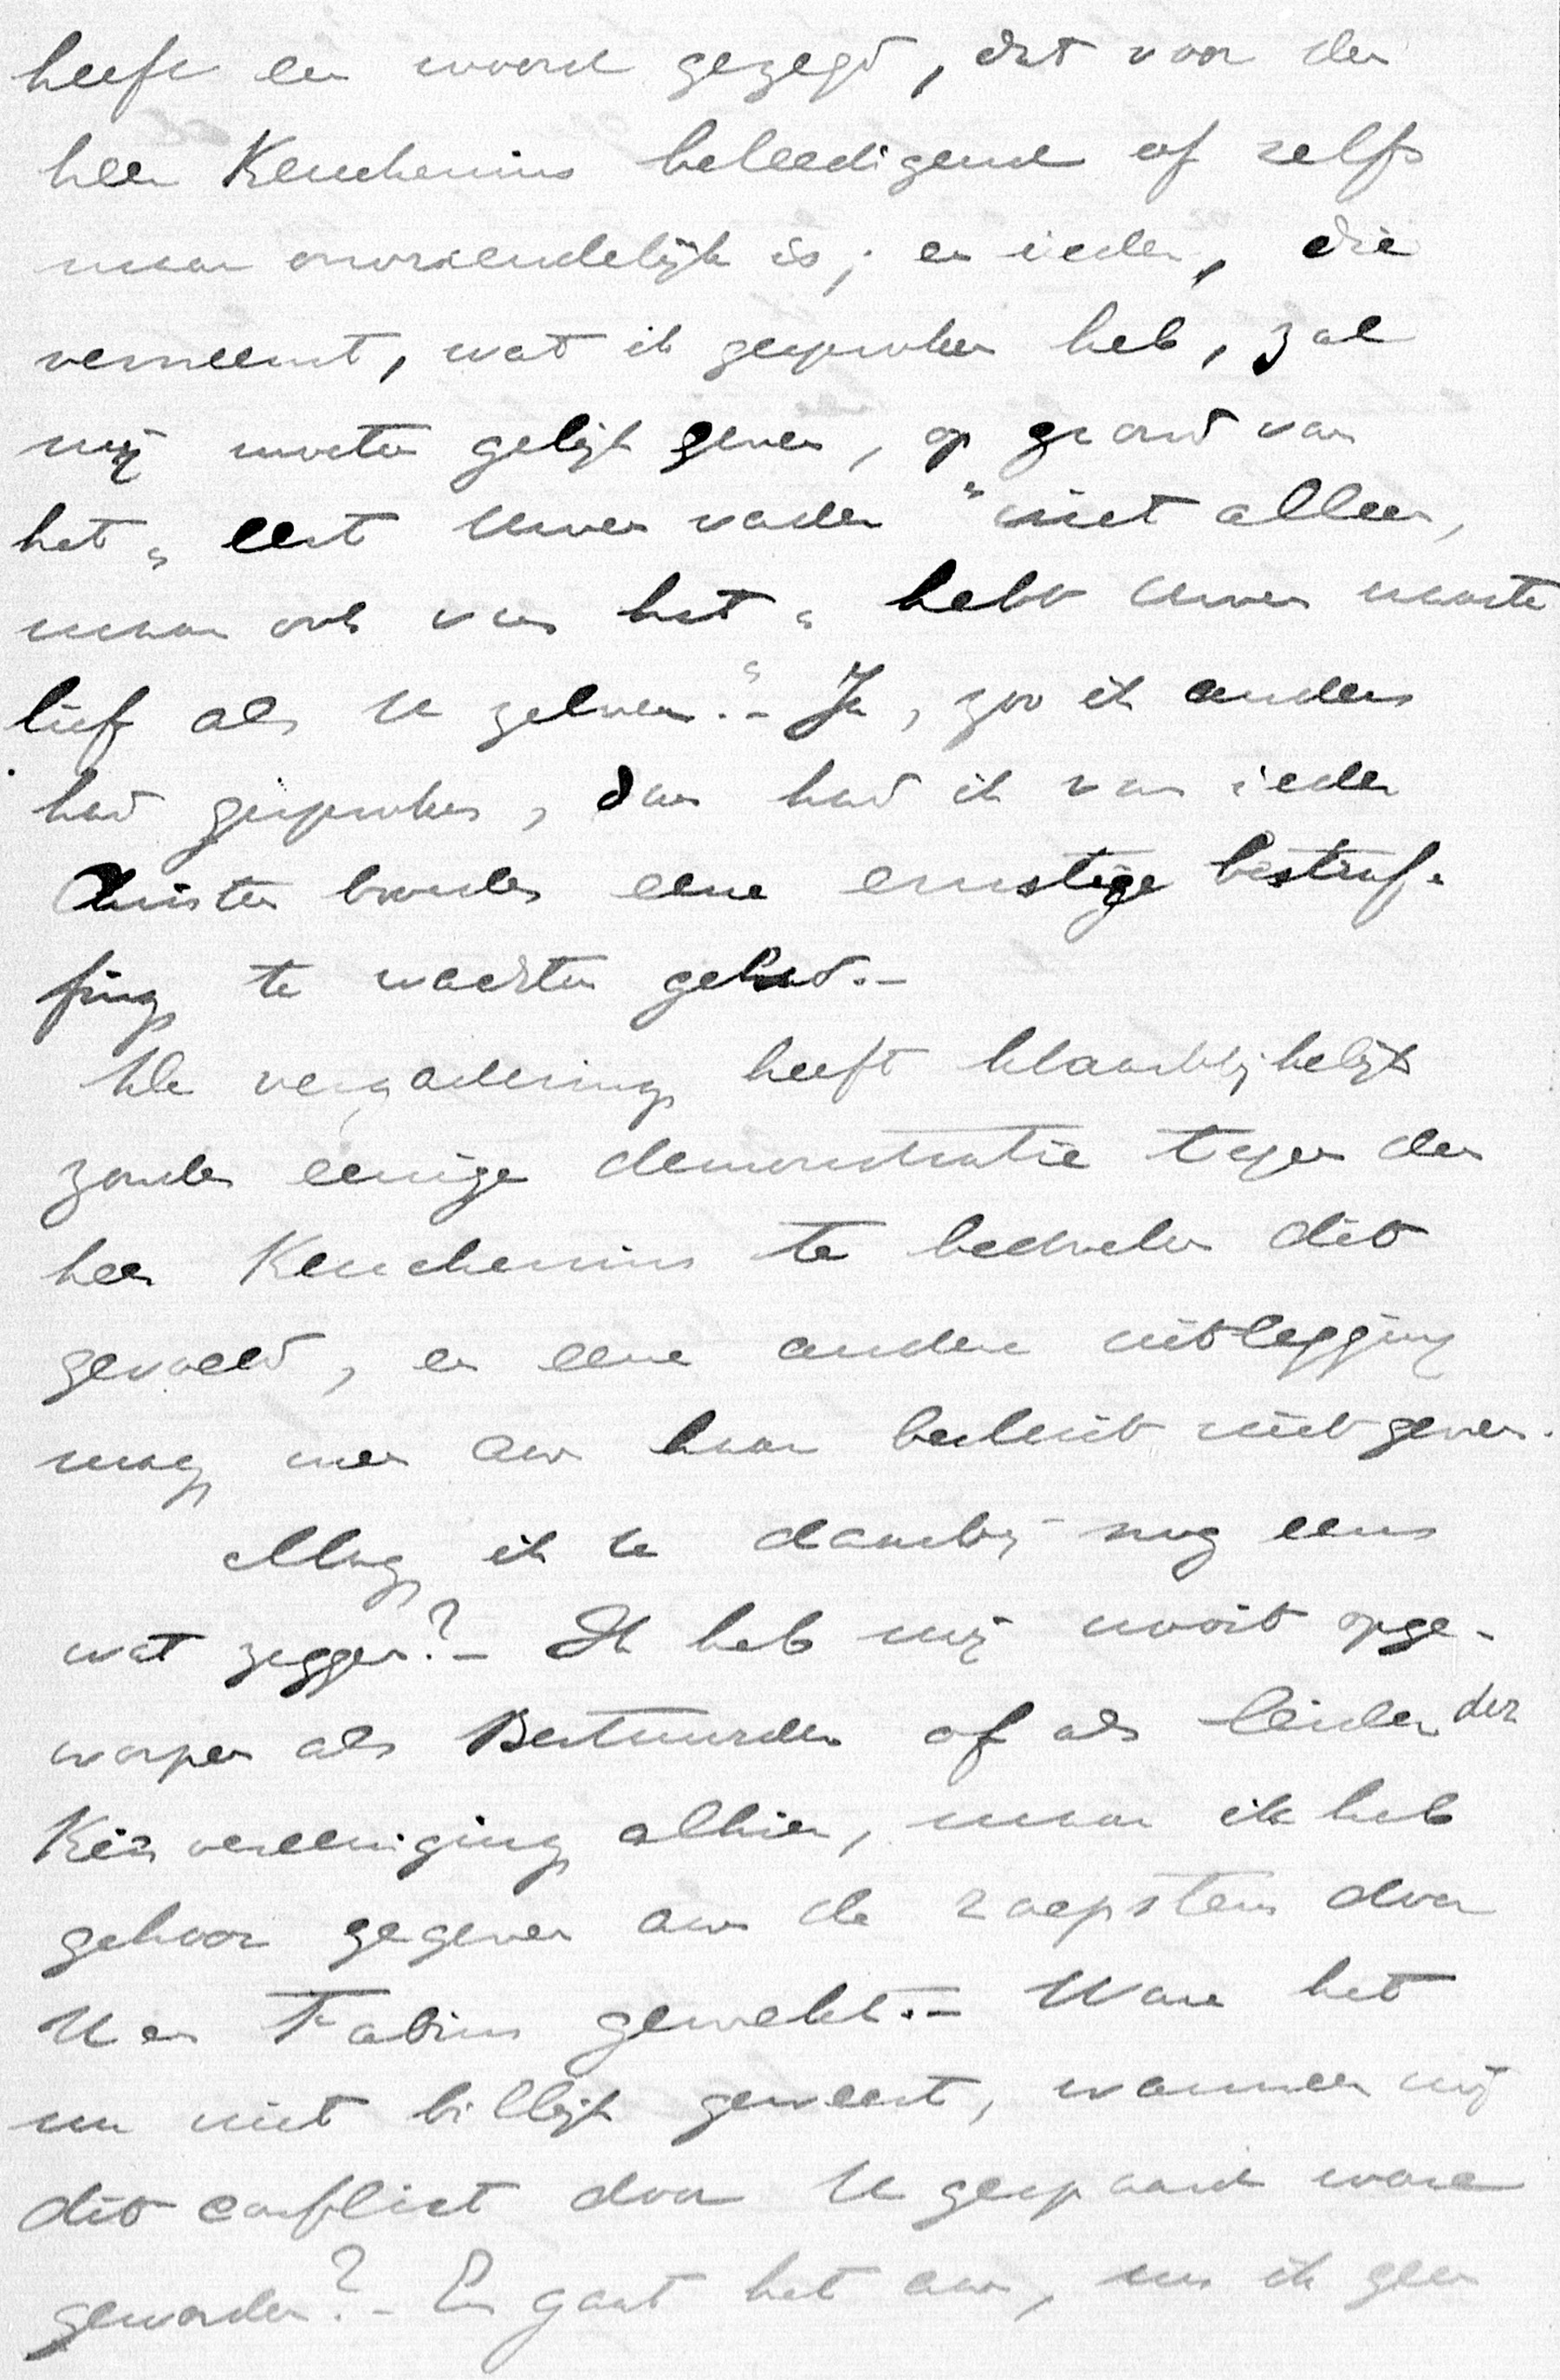 heeft een woord gezegd, dat voor den
heer Keuchenius beleedigend of zelfs
maar onvriendelijk is; en ieder, die
verneemt, wat ik gesproken heb, zal
mij moeten gelijk geven, op grond van
het „eert Uwen vader" niet alleen,
maar ook van het „hebt Uwen naaste
lief als U zelven."- Ja, zoo ik anders
had gesproken, dan had ik van ieder
Christen broeder eene ernstige bestraf-
fing te wachten gehad.-
De vergadering heeft klaarblijkelijk
zonder eenige demonstratie tegen den
heer Keuchenius te bedoelen dit
gevoeld, en eene andere uitlegging
mag men aan haar besluit niet geven.
Mag ik U daarbij nog eens
wat zeggen?- Ik heb mij nooit opge-
worpen als Bestuurder of als leider der
Kiesvereeniging alhier, maar ik heb
gehoor gegeven aan de roepstem door
U en Fabius gewekt.- Ware het
nu niet billijk geweest, wanneer mij
dit conflict door U gespaard ware
geworden?- En gaat het aan, nu ik geen